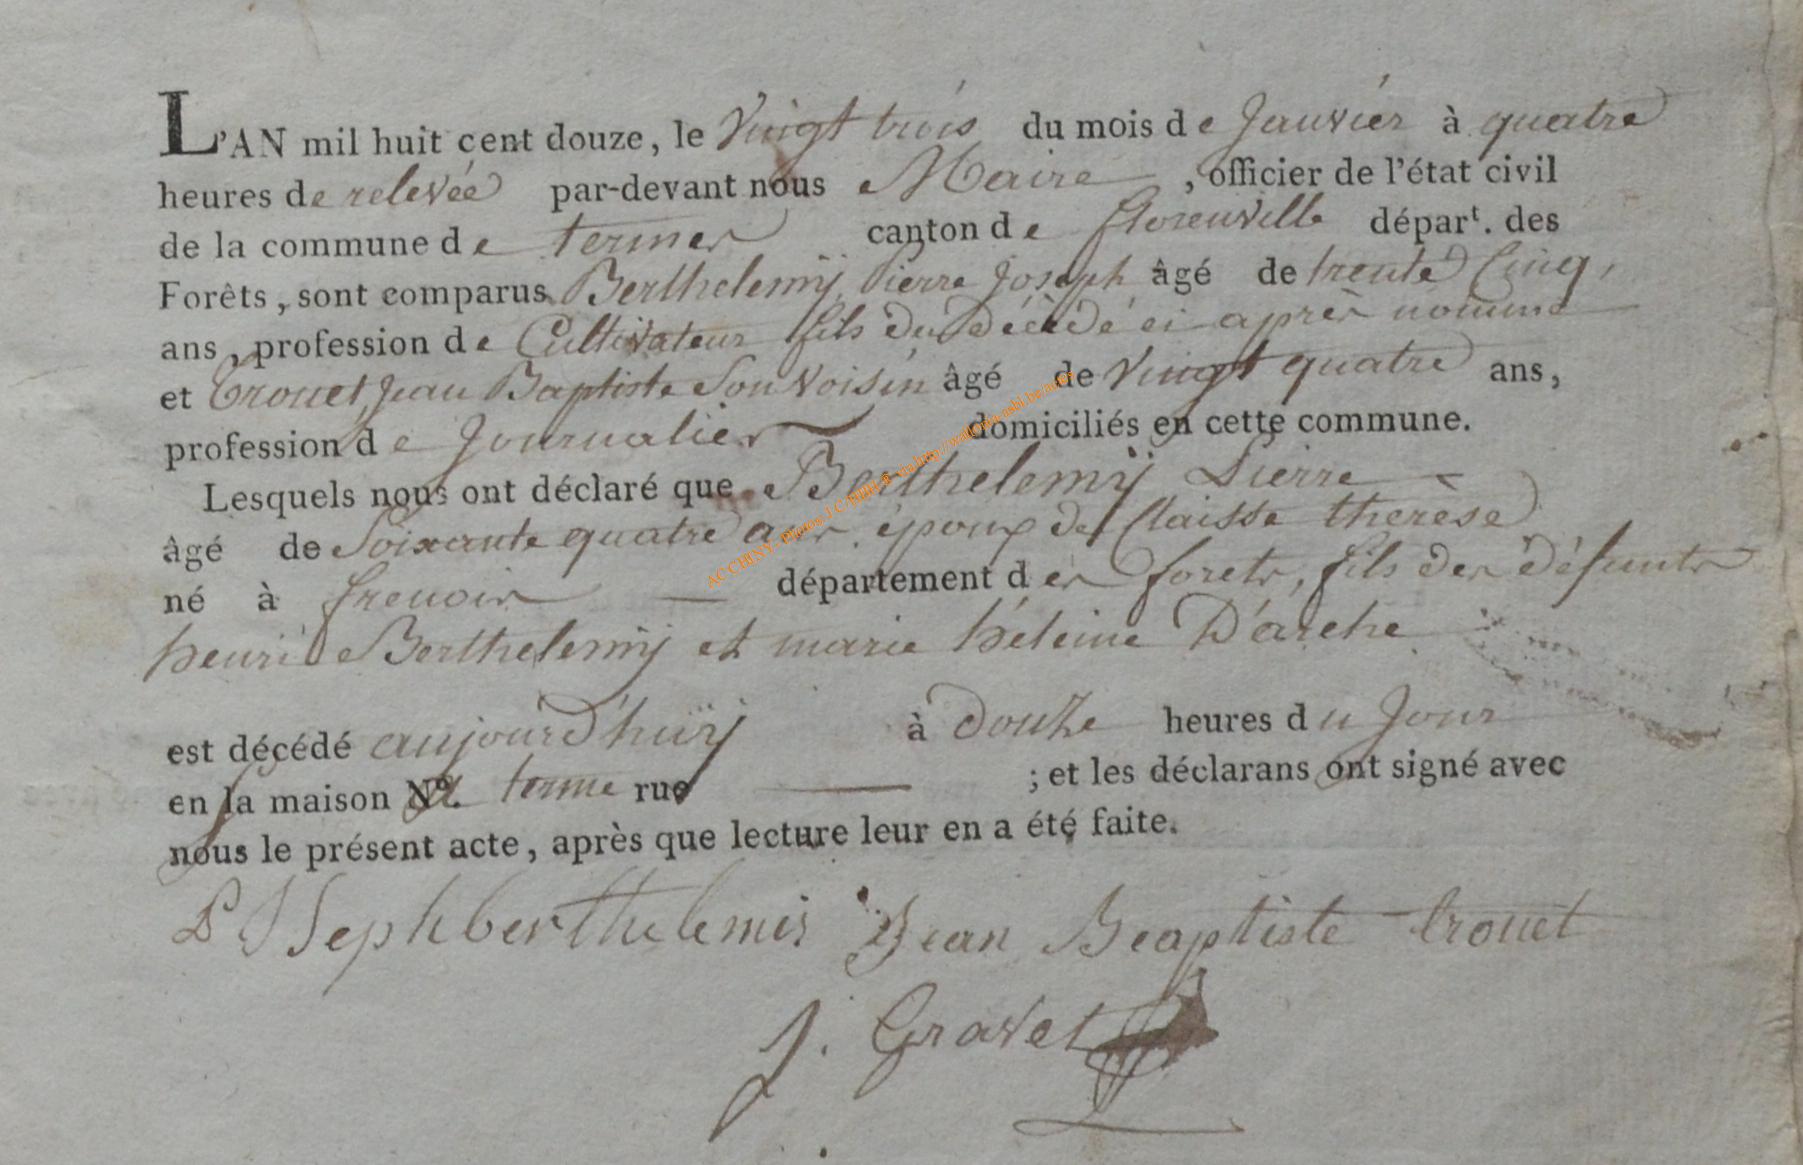 L'AN mil huit cent douze, le Vingt trois du mois de Janvier à quatre
heures de relevée par-devant nous Maire, officier de l'état civil
de la commune de termes canton de florenvilleépart. des
Forêts, sont comparus Berthelemÿ Pierre Joseph âgé de trente Cinq,
ans, profession de Cultivateur fils du décédé ci après nommé
et Trouet, Jean Baptiste Son Voisin âgé de Vingt quatre ans,
profession de Journalier domiciliés en cette commune.
Lesquels nous ont déclaré que Berthelemÿ Pierre
âgé de Soixante quatre ans, époux de Claisse therèse
né à frenoir — département des forets, fils des défunts
henri Berthelemÿ et marie héleine D'arche
est décédé aujourd'huÿ à douze heures du Jour
en la maison N°. a terme rue — ; et les déclarans ont signé avec
nous le présent acte, après que lecture leur en a été faite.
P J Seph berthelemis Jean Beaptiste trouet
J. Gravet
ACCHINY - Photos J.C.